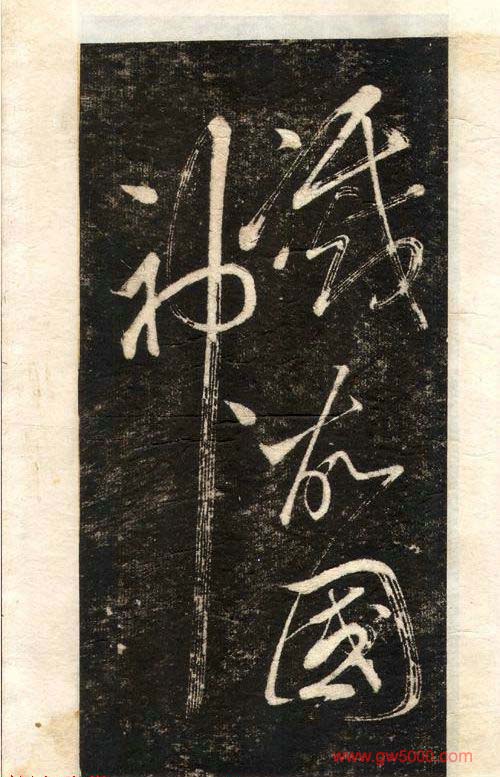 滅故國
神
www.gw5000.com